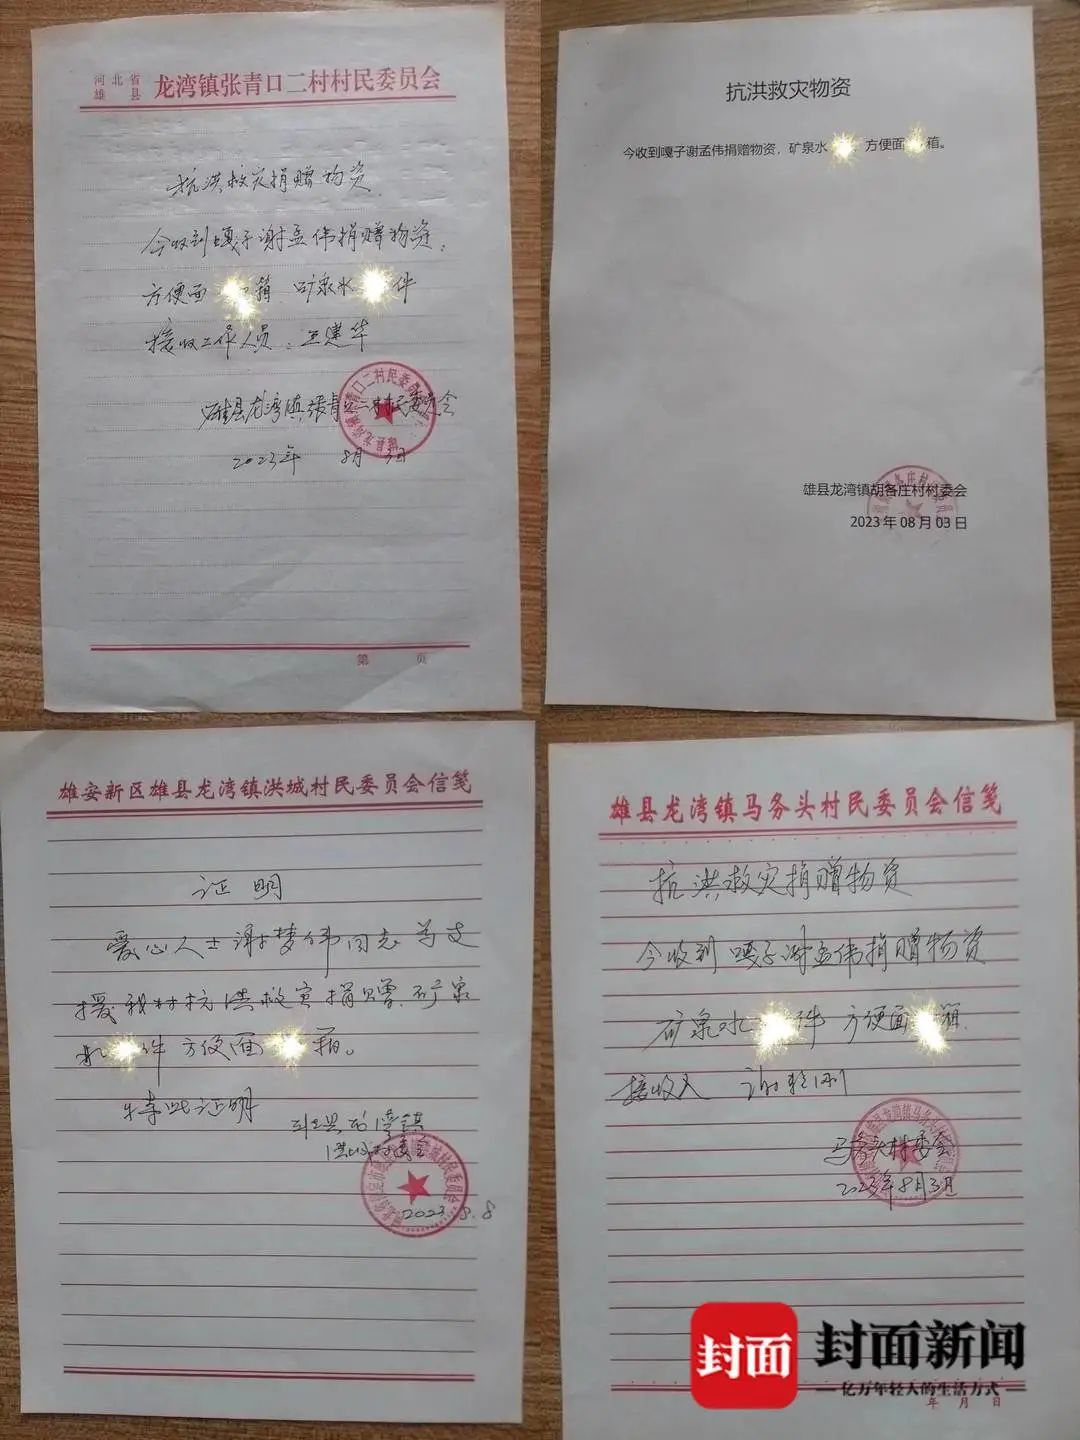 河北省
雄县
龙湾镇张青口二村村民委员会
抗洪救灾捐赠物资
今收到嘎子谢孟伟捐赠物资：
方便面 箱 矿泉水 件
接收工作人员：王建华
雄县龙湾镇张青口二村村民委员会
2023年 8月 3日
第 页
抗洪救灾物资
今收到嘎子谢孟伟捐赠物资，矿泉水 方便面 箱。
雄县龙湾镇胡各庄村村委会
2023年08月03日
雄安新区雄县龙湾镇洪城村民委员会信笺
证明
爱心人士谢梦伟同志为支
援我村抗洪救灾捐赠矿泉
水 件 方便面 箱。
特此证明
洪城村委会
2023.8.8
雄县龙湾镇马务头村民委员会信笺
抗洪救灾捐赠物资
今收到 嘎子谢孟伟捐赠物资
矿泉水 件 方便面 箱
接收人 谢
马务头村委会
2023年8月3日
年 月 日
封面
封面新闻
亿万年轻人的生活方式